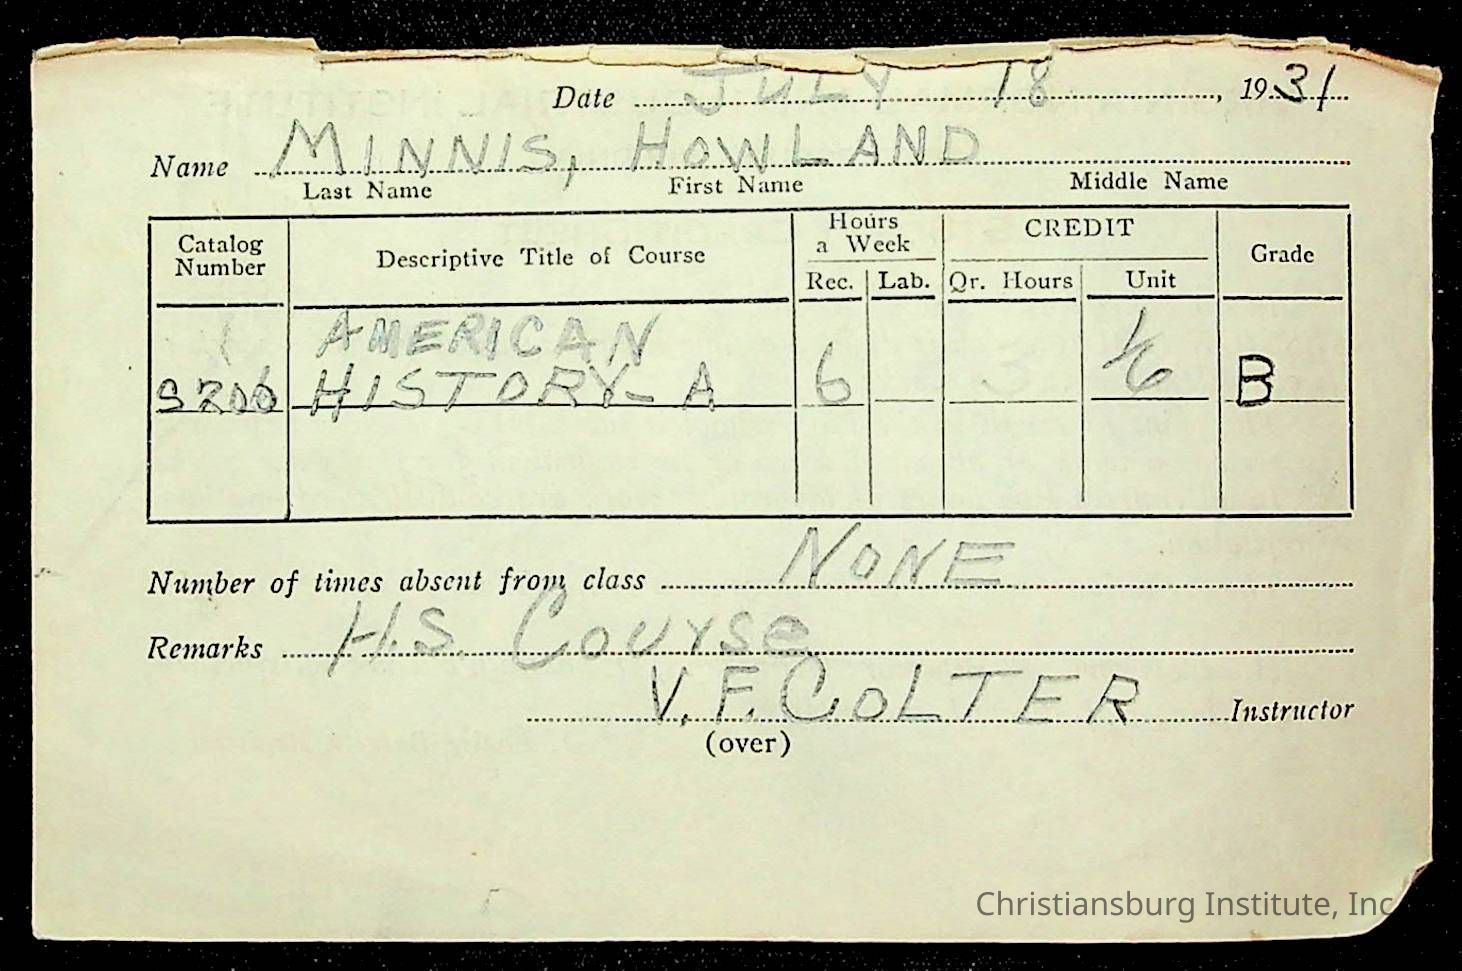 Date JULY 18, 1931
Name MINNIS, HOWLAND
Last Name First Name Middle Name
Catalog Number Descriptive Title of Course Hours a Week CREDIT Grade
Rec. Lab. Qr. Hours Unit
AMERICAN
S206 HISTORY-A 6 1/6 B
Number of times absent from class NONE
Remarks H.S. Course
V. F. COLTER Instructor
(over)
Christiansburg Institute, Inc